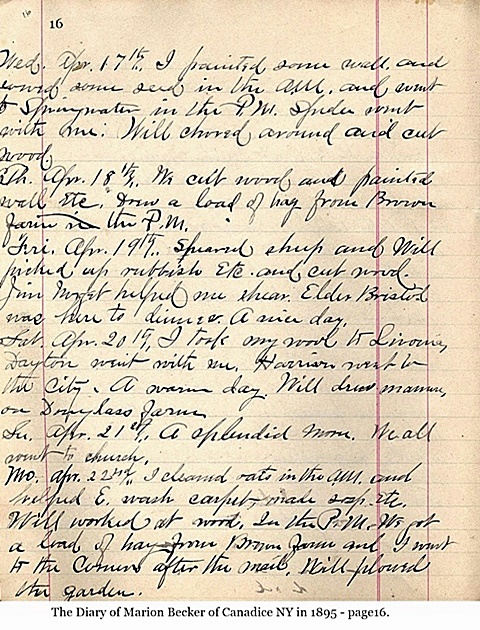 16
16
Wed. Apr. 17th, I painted some wall. and
sowed some seed in the A.M. and went
to Springwater in the P.M. Snyder went
with me: Will chored around and cut
wood.
Th. Apr. 18th, We cut wood and painted
wall Etc. Drew a load of hay from Brown
farm in the P.M.
Fri. Apr. 19th, Speared sheep and Will
picked up rubbish Etc. and cut wood.
Jim helped me shear. Elder Bristol
was here to dinner. A nice day.
Sat. Apr. 20th, I took my wool to Livonia,
Dayton went with me. Harrison went to
the City. A warm day. Will drew manure,
on Douglass farm
Su. Apr. 21st, A splendid morn. We all
went to church.
Mo. Apr. 22nd, I cleaned oats in the A.M. and
helped E. wash carpet, made soap etc.
Will worked at wood, In the P.M. We got
a load of hay from Brown farm and I went
to the Corners after the mail. Will plowed
the garden.
The Diary of Marion Becker of Canadice NY in 1895 - page16.